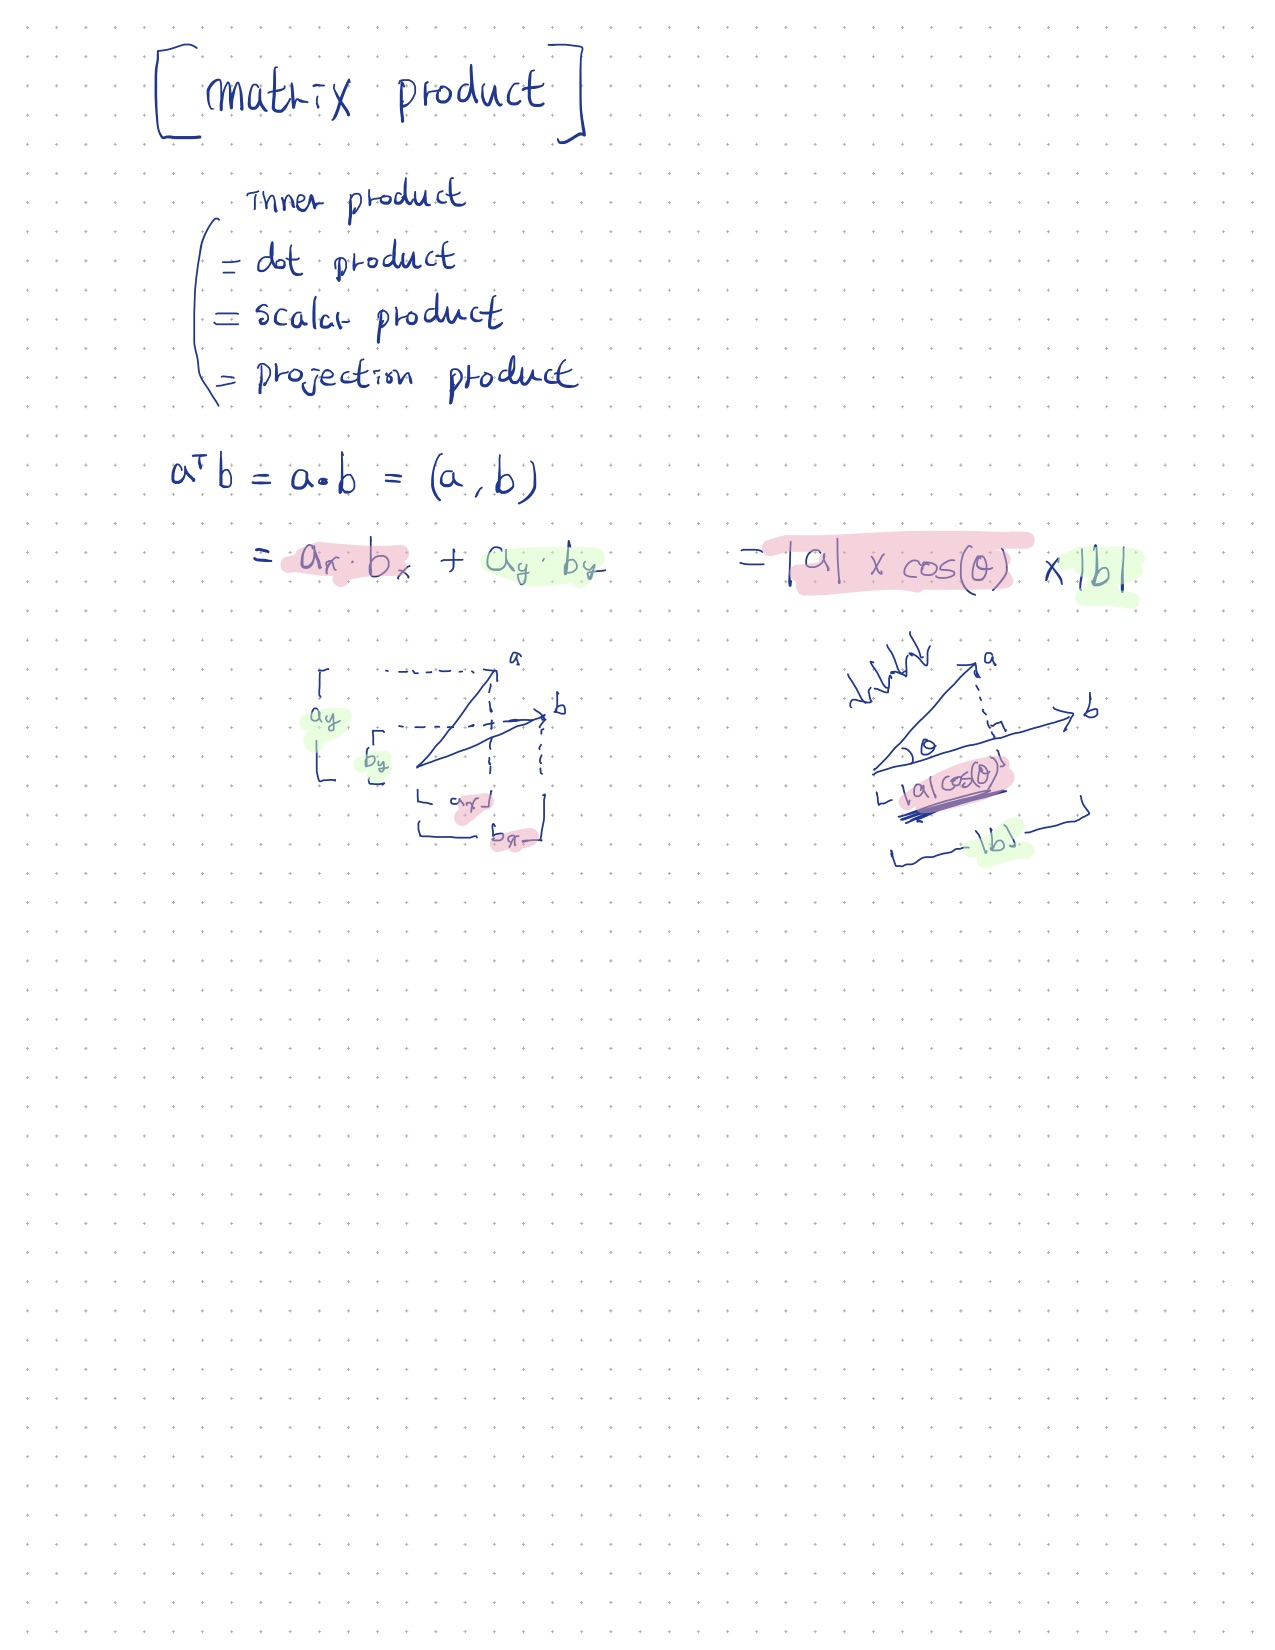 [matrix product]
inner product
= dot product
= scalar product
= projection product
aᵀb = a·b = (a, b)
= aₓ·bₓ + a_y·b_y = |a| × cos(θ) × |b|
a
b
a_y
b_y
aₓ
bₓ
a
b
θ
|a|cos(θ)
|b|